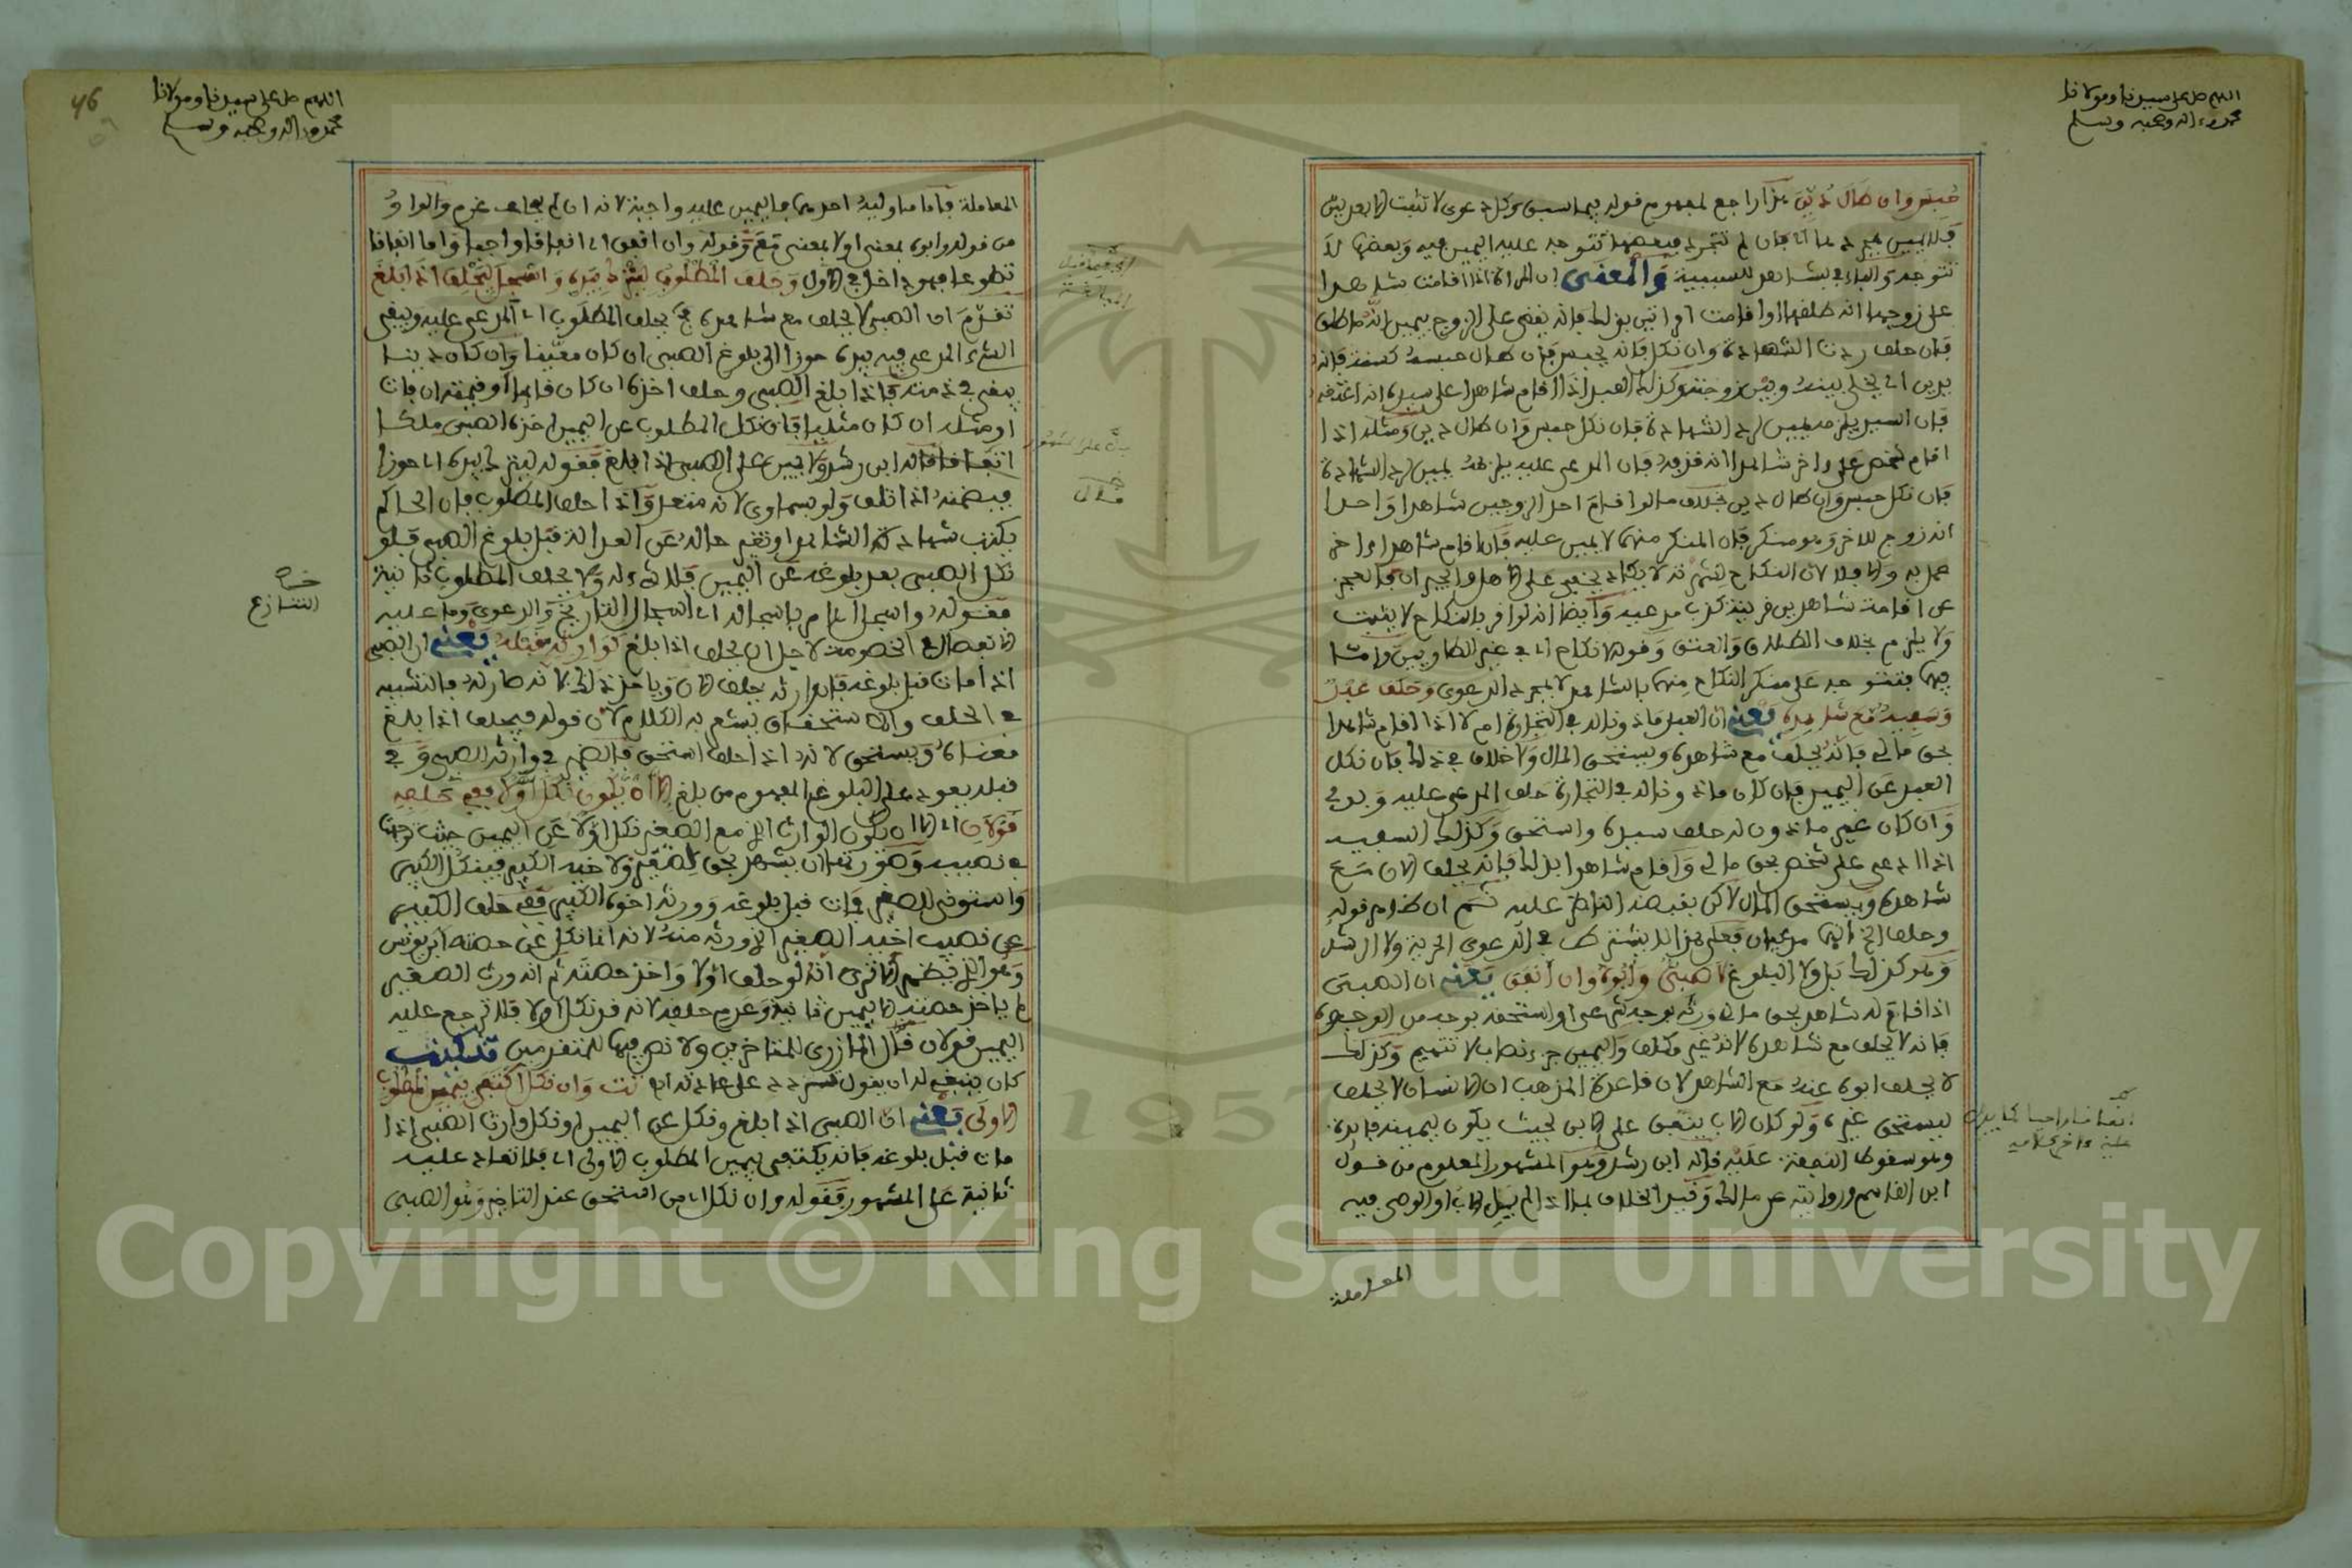 اللهم صل على سيدنا ومولانا
محمد وءاله وصحبه وسلم
حبس وان طال دين هذا راجع لمفهوم قوله فيما سبق وكل دعوى لا تثبت الا بعدلين
فلا يمين بمجردها اي فان لم تتجرد فبعضها تتوجه عليه اليمين فيه وبعضها لا
تتوجه والباء في بشاهد للسببية والمعنى ان المراة اذا اقامت شاهدا
على زوجها انه طلقها او اقامت امراتين بذلك فانه يقضى على الزوج بيمين انه ما طلق
فان حلف ردت الشهادة وان نكل فانه يحبس فان طال حبسه كسنة فانه
يدين اي يخلى بينه وبين زوجته وكذلك العبد اذا اقام شاهدا على سيده انه اعتقه
فان السيد يلزمه يمين لرد الشهادة فان نكل حبس وان طال دين ومثله اذا
اقام شخص على ءاخر شاهدا انه قذفه فان المدعى عليه يلزمه يمين لرد الشهادة
فان نكل حبس وان طال دين بخلاف ما لو اقام احد الزوجين شاهدا واحدا
انه زوج للاخر وهو منكر فان المنكر منهما لا يمين عليه فان اقام شاهدا ءاخر
عمل به والا فلا لان النكاح لشهرته لا يكاد يخفى على الاهل والجيران فالعجز
عن اقامة شاهدين قرينة كذب مدعيه وايضا انه لو اقر بالنكاح لا يثبت
ولا يلزم بخلاف الطلاق والعتق وقوله لا نكاح اي في غير الطاريين واما
فيهما فتتوجه على منكر النكاح منهما بالشاهد لا بمجرد الدعوى وحلف عبد
وسفيه مع شاهد يعني ان العبد ماذونا له في التجارة ام لا اذا اقام شاهدا
بحق مالي فانه يحلف مع شاهده ويستحق المال ولا خلاف في ذلك فان نكل
العبد عن اليمين فان كان ماذونا له في التجارة حلف المدعى عليه وبرئ
وان كان غير ماذون له حلف سيده واستحق وكذلك السفيه
اذا ادعى على شخص بحق مالي واقام شاهدا بذلك فانه يحلف الان مع
شاهده ويستحق المال لاكن يقبضه الناظر عليه ثم ان ظاهر قوله
وحلف الخ انهما مدعيان فعلى هذا لا يشترط في الدعوى الحرية ولا الرشد
وهو كذلك بل ولا البلوغ لا صبي وابوه وان انفق يعني ان الصبي
اذا اقام له شاهد بحق مالي ورثه بوجه شرعي او استحقه بوجه من الوجوه
فانه لا يحلف مع شاهده لانه غير مكلف واليمين جزء نصاب لا تتميم وكذلك
لا يحلف ابوه عنه مع الشاهد لان قاعدة المذهب ان الانسان لا يحلف
ليستحق غيره ولو كان الاب ينفق على الابن بحيث يكون ليمينه فايدة
وهو سقوط النفقة عليه قاله ابن رشد وهو المشهور المعلوم من قول
ابن القاسم وروايته عن مالك وقيد الخلاف بما اذا لم يل الاب او الوصي فيه
المعاملة
46
اللهم صل على سيدنا ومولانا
محمد وءاله وصحبه وسلم
المعاملة فاما ما وليه احدهما فاليمين عليه واجبة لانه ان لم يحلف غرم والواو
من قوله وابوه بمعنى او لا بمعنى مع وقوله وان انفق اي انفاقا واجبا واما انفاقا
تطوعا فهو داخل في الاول وحلف المطلوب ليترك بيده واسجل ليحلف اذا بلغ
تقدم ان الصبي لا يحلف مع شاهده بل يحلف المطلوب اي المدعى عليه ويبقى
الشيء المدعى فيه بيده حوزا الى بلوغ الصبي ان كان معينا وان كان دينا
يبقى في ذمته فاذا بلغ الصبي وحلف اخذه ان كان قايما او قيمته ان فات
او مثله ان كان مثليا فان نكل المطلوب عن اليمين اخذه الصبي ملكا
اتفاقا قاله ابن رشد ولا يمين على الصبي اذا بلغ فقوله ليترك بيده اي حوزا
فيضمنه اذا تلف ولو بسماوي لانه متعد واذا حلف المطلوب فان الحاكم
يكتب شهادة الشاهد او تغير حاله عن العدالة قبل بلوغ الصبي فلو
نكل الصبي بعد بلوغه عن اليمين فلا شيء له ولا يحلف المطلوب ثانية
فقوله واسجل امر باسجاله اي اسجال التاريخ والدعوى وما عليه
الانفصال في الخصومة لاجل ان يحلف اذا بلغ كوارثه قبله يعني ان الصبي
اذا مات قبل بلوغه فان وارثه يحلف الان وياخذ ذلك لانه صار له فالتشبيه
في الحلف والاستحقاق يشعر به الكلام لان قوله فيحلف اذا بلغ
معناه ويستحق لانه اذا حلف استحق فالضمير في وارثه للصبي وفي
قبله يعود على البلوغ المفهوم من بلغ الا ان يكون نكل اولا ففي حلفه
قولان اي الا ان يكون الوارث الذي مع الصغير نكل اولا عن اليمين حيث توجهت
في نصيبه وصورتها ان يشهد بحق لصغير ولاخيه الكبير فينكل الكبير
واستوفي للصغير فمات قبل بلوغه وورثه اخوه الكبير ففي حلف الكبير
على نصيب اخيه الصغير الذي ورثه منه لانه انما نكل عن حصته ابن يونس
وهو الذي يظهر الا ترى انه لو حلف اولا واخذ حصته ثم انه ورث الصغير
لم ياخذ حصته الا بيمين ثانية وعدم حلفه لانه قد نكل اولا فلا ترجع عليه
اليمين قولان قال المازري للمتاخرين ولا نص فيها للمتقدمين قد كتب
كان ينبغي له ان يقول تردد على عادته انه تت وان نكل اكتفي بيمين المطلوب
الاولى يعني ان الصبي اذا بلغ ونكل عن اليمين او نكل وارث الصبي اذا
مات قبل بلوغه فانه يكتفى بيمين المطلوب الاولى اي فلا تعاد عليه
ثانية على المشهور فقوله وان نكل اي من استحق عند التاخير وهو الصبي